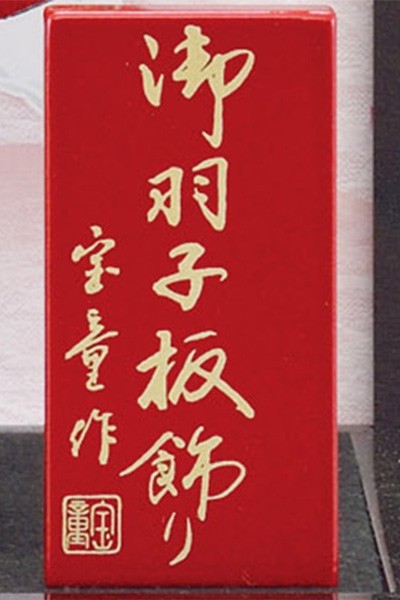 御羽子板飾り
宝童作
宝童